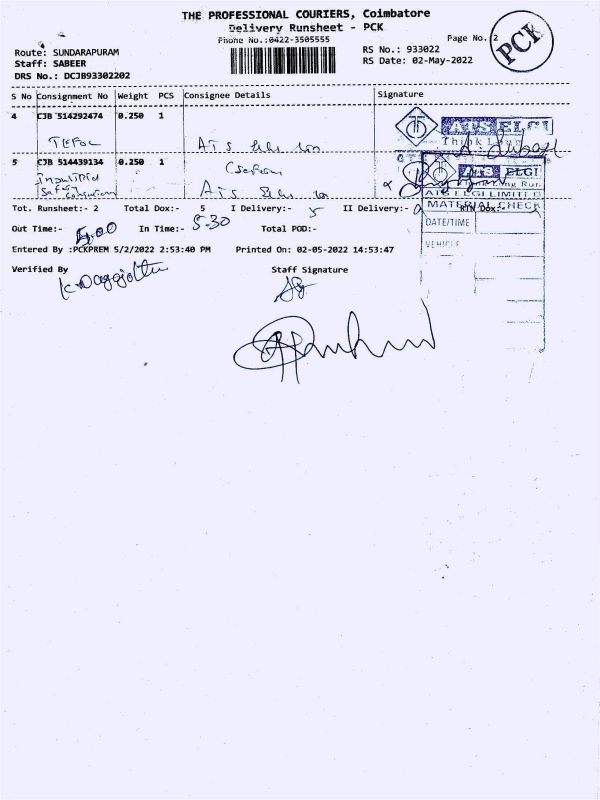 THE PROFESSIONAL COURIERS, Coimbatore
Delivery Runsheet - PCK
Phone No.:0422-3505555
Page No. 2
PCK
Route: SUNDARAPURAM
Staff: SABEER
DRS No.: DCJB93302202
RS No.: 933022
RS Date: 02-May-2022
S No Consignment No Weight PCS Consignee Details Signature
4 CJB 514292474 0.250 1
ATS ELGI
ATS
5 CJB 514439134 0.250 1
ATS
ATS ELGI
ATS ELGI LIMITED
MATERIAL CHECK
DATE/TIME
VEHICLE
Tot. Runsheet:- 2 Total Dox:- 5 I Delivery:- 5 II Delivery:- 0 RTN Dox:-
Out Time:- In Time:- 5.30 Total POD:-
Entered By :PCKPREM 5/2/2022 2:53:40 PM Printed On: 02-05-2022 14:53:47
Verified By Staff Signature